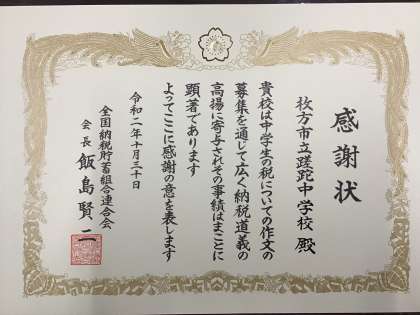 感謝状
枚方市立蹉跎中学校 殿
貴校は中学生の税についての作文の
募集を通じて広く納税道義の
高揚に寄与されその事績はまことに
顕著であります
よってここに感謝の意を表します
令和二年十月三十日
全国納税貯蓄組合連合会
会長 飯島賢二